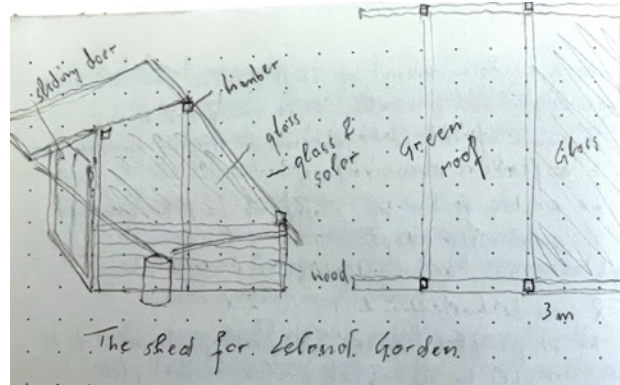 sliding door
timber
glass
glass &
solar
wood
Green
roof
Glass
3m
The shed for Garden.